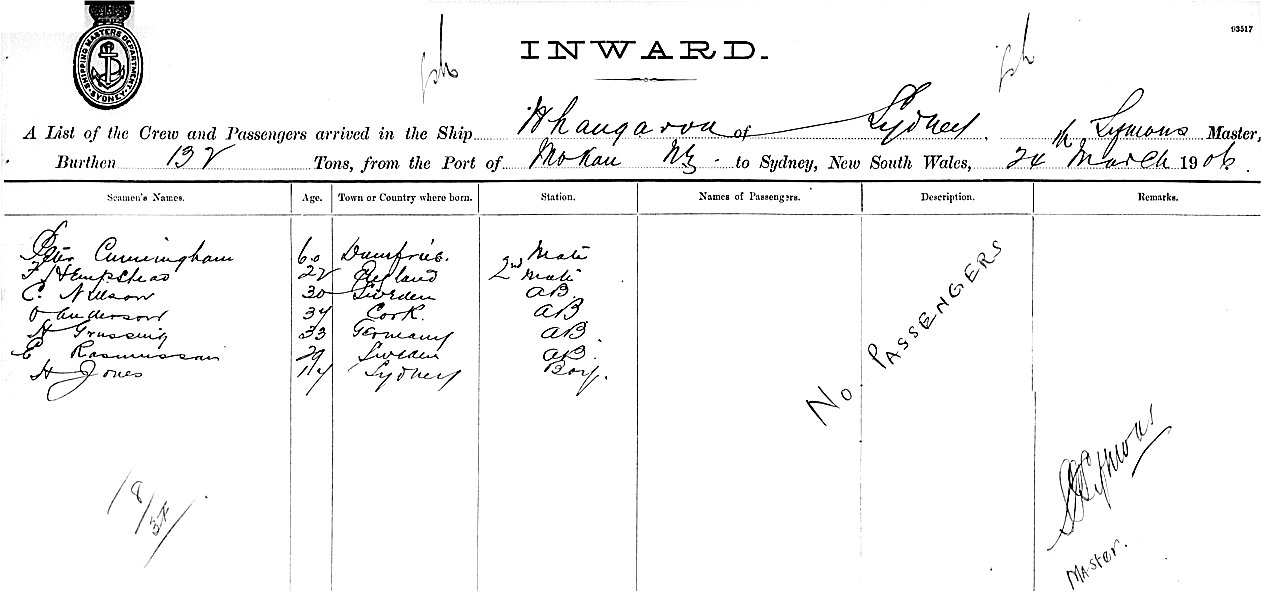 SHIPPING MASTERS DEPARTMENT. SYDNEY.
93517
INWARD.
A List of the Crew and Passengers arrived in the Ship Whangaroa of Sydney. Symons Master,
Burthen 132 Tons, from the Port of Mokau NZ. to Sydney, New South Wales, 24 March 1906.
Seamen's Names. Age. Town or Country where born. Station. Names of Passengers. Description. Remarks.
Peter Cunningham 60 Dumfries. Mate
F Hempstead 22 England 2nd Mate
C. Nilsson 30 Sweden AB.
O Anderson 34 Cork. AB
H Grussing 33 Germany AB.
E Rasmussen 29 Sweden AB.
H Jones 17 Sydney Boy.
No PASSENGERS
Symons
Master.